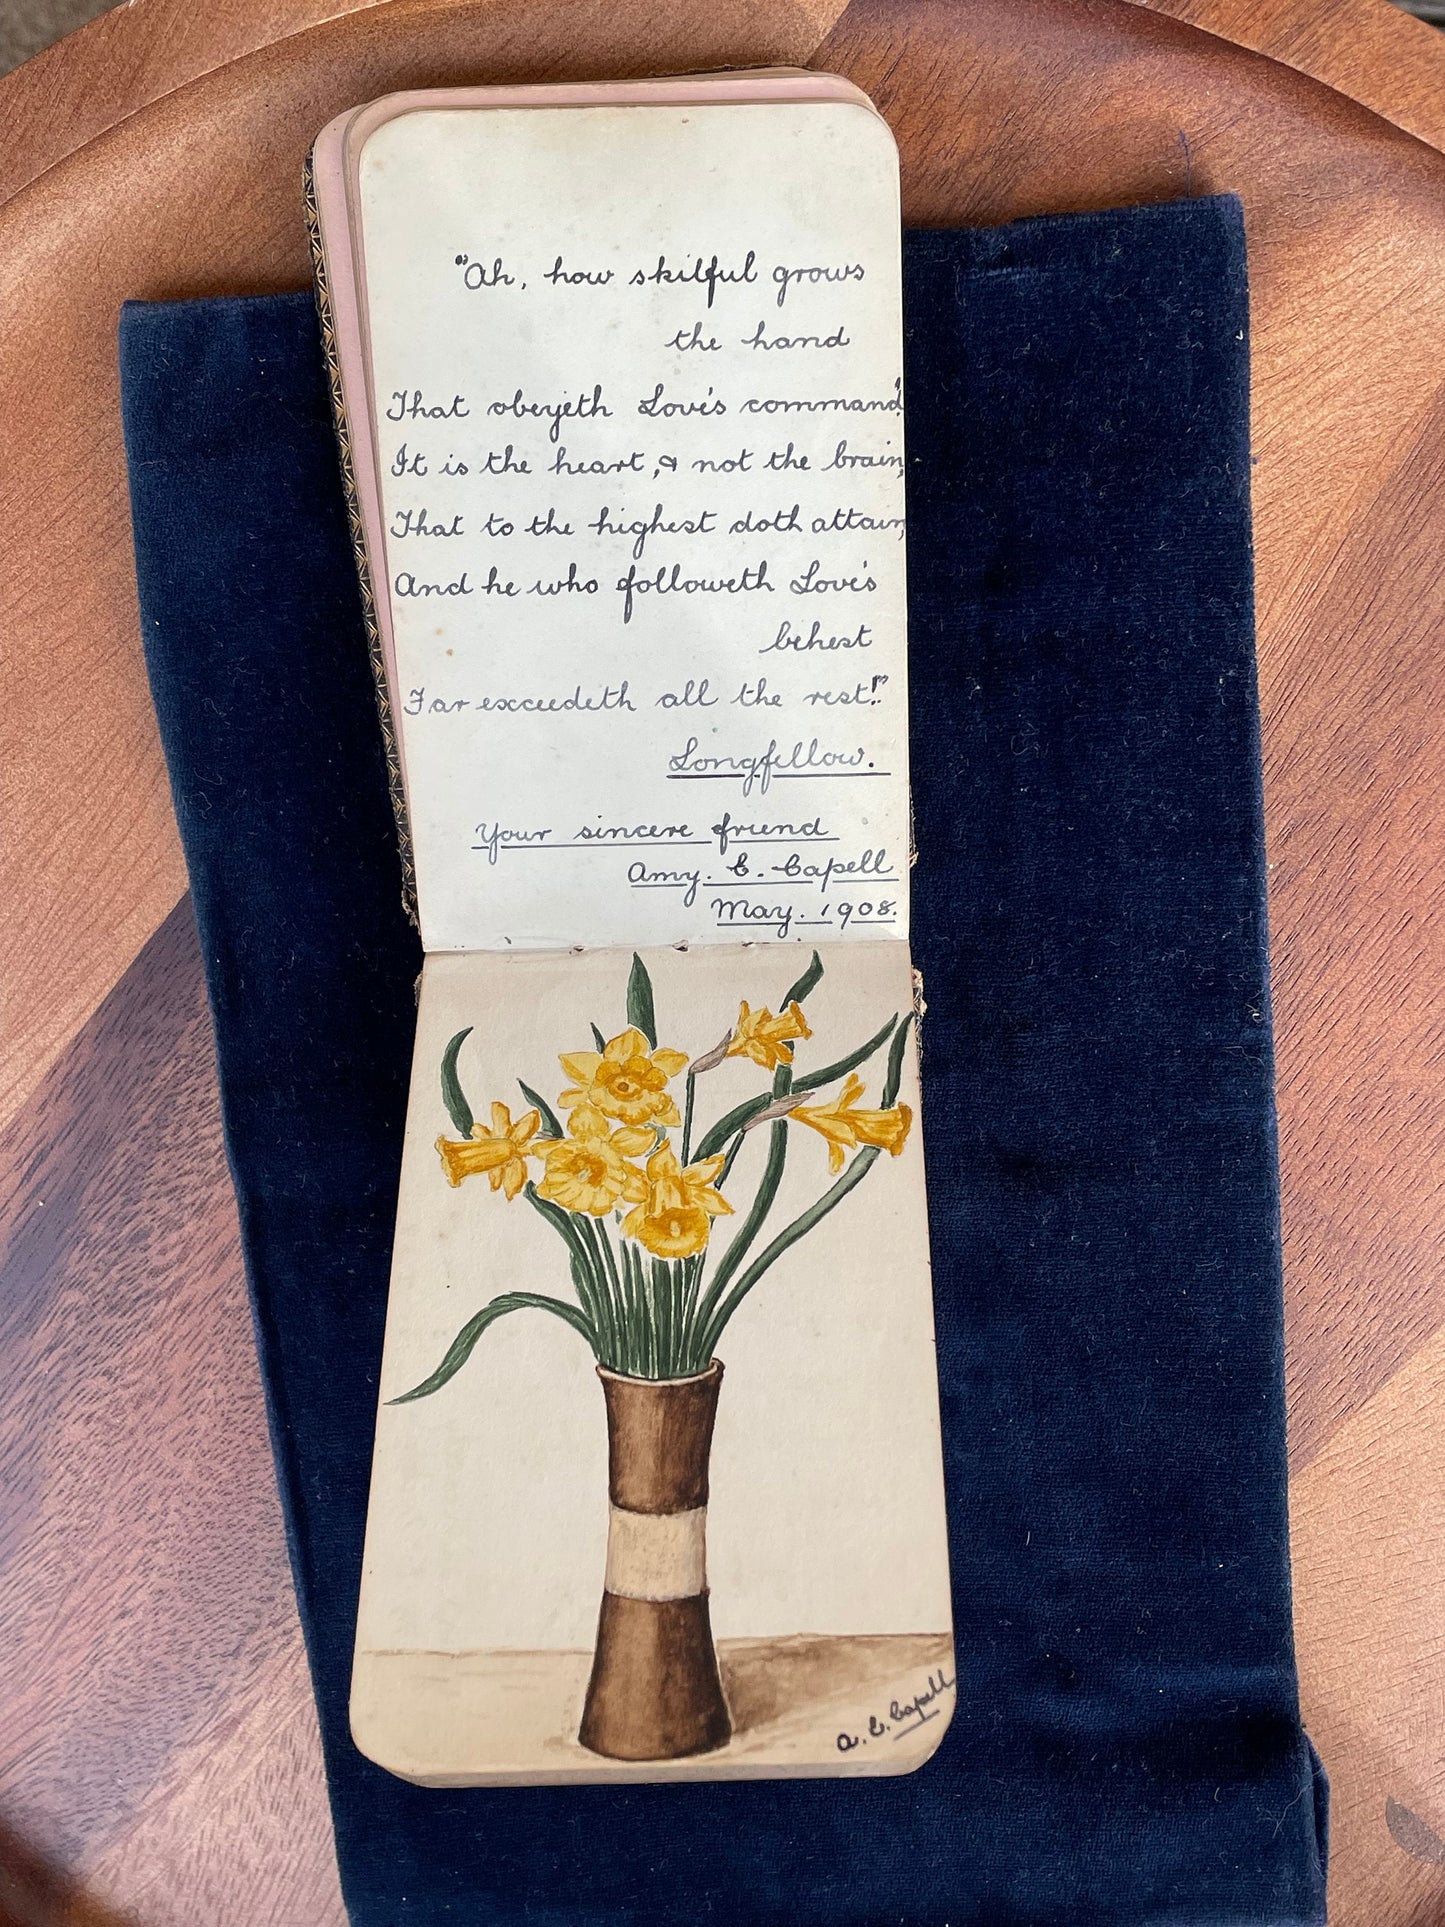 "Ah, how skilful grows
the hand
That obeyeth Love's command!
It is the heart, & not the brain,
That to the highest doth attain,
And he who followeth Love's
behest
Far exceedeth all the rest!"
Longfellow.
Your sincere friend
Amy. C. Capell
May. 1908.
A. C. Capell